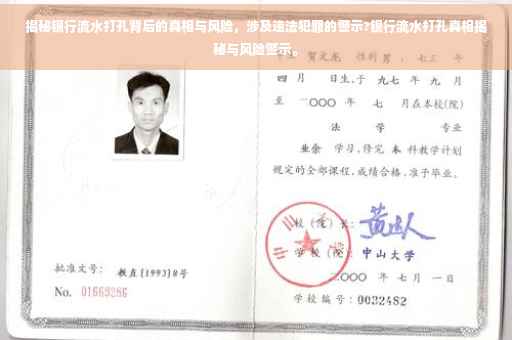 揭秘银行流水打孔背后的真相与风险，涉及违法犯罪的警示?银行流水打孔真相揭
秘与风险警示。
贺文龙 性别 男 ，七三 年
四 月 日生,于 九七 年 九 月
至 二〇〇〇 年 七 月在本校(院)
法 学 专业
业余 学习,修完 本 科教学计划
规定的全部课程,成绩合格,准予毕业。
校 (院) 长:
学 校 (院): 中山大学
二〇〇〇 年 七 月 一 日
学校编号: 0032482
批准文号: 教直(1993)8号
No. 01669286